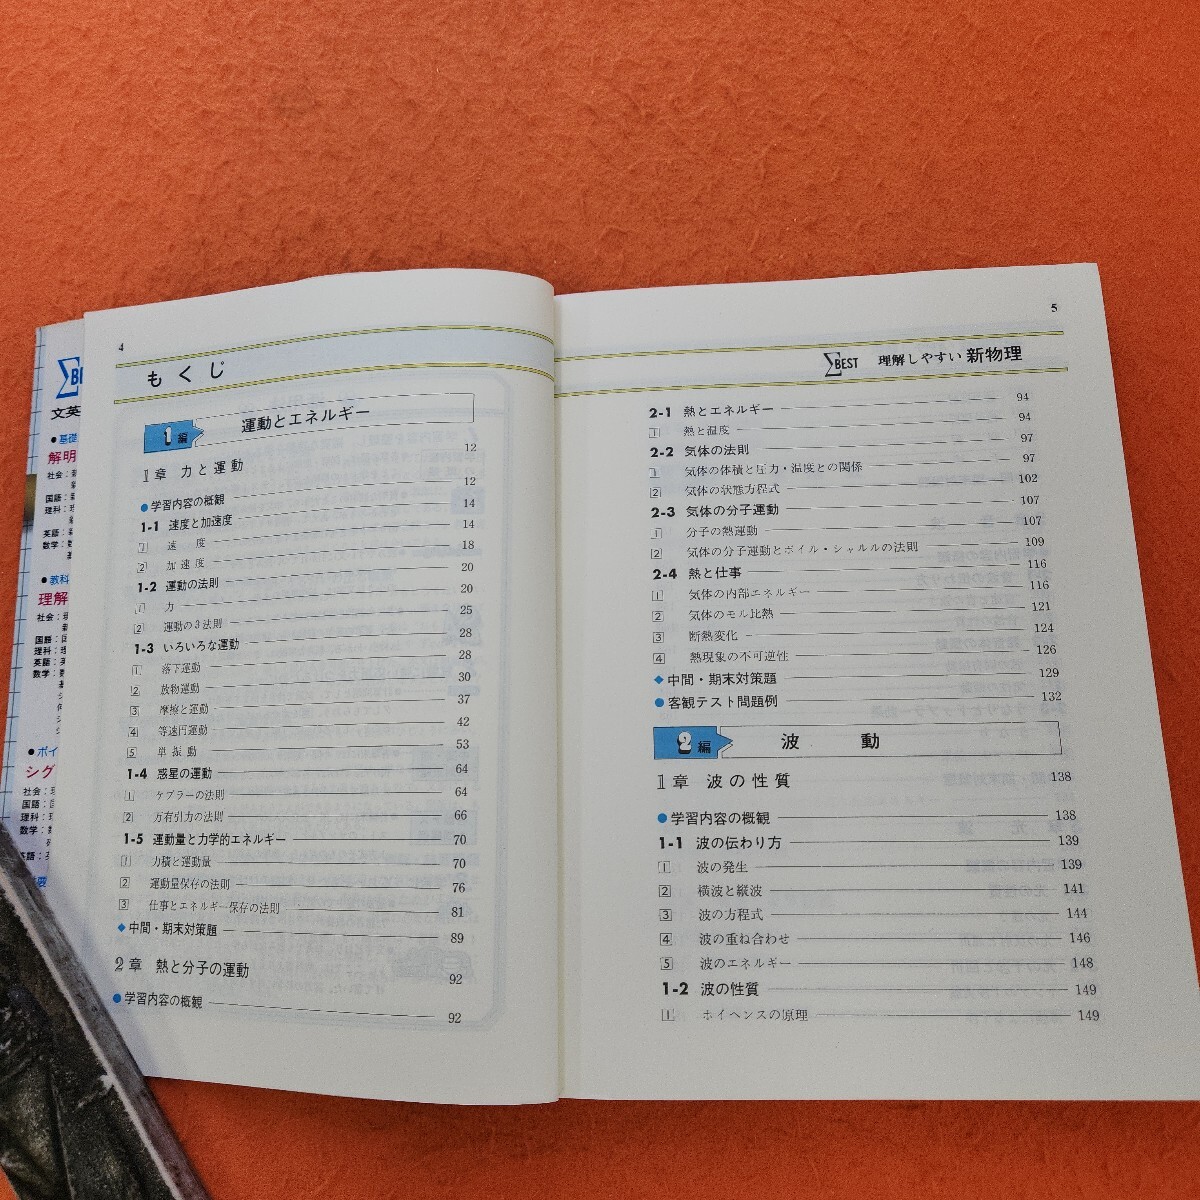 4
もくじ
1編 運動とエネルギー
1章 力と運動 12
●学習内容の概観 12
1-1 速度と加速度 14
1 速度 14
2 加速度 18
1-2 運動の法則 20
1 力 20
2 運動の3法則 25
1-3 いろいろな運動 28
1 落下運動 28
2 放物運動 30
3 摩擦と運動 37
4 等速円運動 42
5 単振動 53
1-4 惑星の運動 64
1 ケプラーの法則 64
2 万有引力の法則 66
1-5 運動量と力学的エネルギー 70
1 力積と運動量 70
2 運動量保存の法則 76
3 仕事とエネルギー保存の法則 81
◆中間・期末対策題 89
2章 熱と分子の運動 92
●学習内容の概観 92
5
ΣBEST 理解しやすい 新物理
2-1 熱とエネルギー 94
1 熱と温度 94
2-2 気体の法則 97
1 気体の体積と圧力・温度との関係 97
2 気体の状態方程式 102
2-3 気体の分子運動 107
1 分子の熱運動 107
2 気体の分子運動とボイル・シャルルの法則 109
2-4 熱と仕事 116
1 気体の内部エネルギー 116
2 気体のモル比熱 121
3 断熱変化 124
4 熱現象の不可逆性 126
◆中間・期末対策題 129
●客観テスト問題例 132
2編 波動
1章 波の性質 138
●学習内容の概観 138
1-1 波の伝わり方 139
1 波の発生 139
2 横波と縦波 141
3 波の方程式 144
4 波の重ね合わせ 146
5 波のエネルギー 148
1-2 波の性質 149
1 ホイヘンスの原理 149
ΣB
文英
●基礎
解明
社会：
国語：
理科：
英語：
数学：
●教科
理解
社会：
国語：
理科：
英語：
数学：
●ポイ
シグ
社会：
国語：
理科：
数学：
英語：